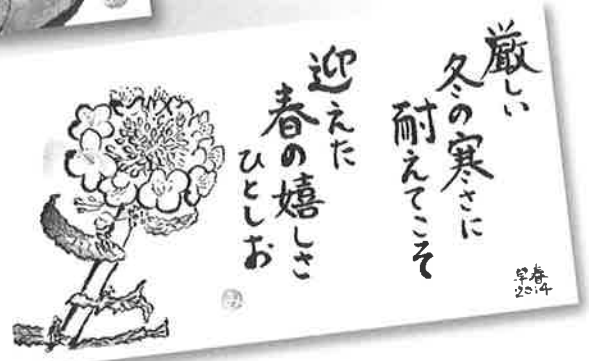 厳しい
冬の寒さに
耐えてこそ
迎えた
春の嬉しさ
ひとしお
み
早春
2014